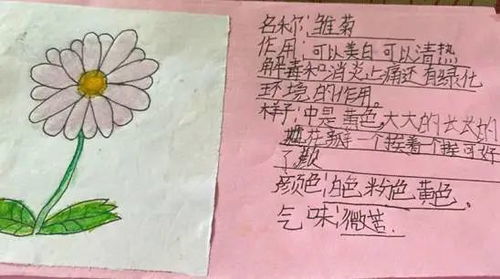 名称:雏菊
作用:可以美白可以清热
解毒和消炎止痛还有绿化
环境的作用。
样子:中是黄色,大大的长长的
花瓣一个接着个接可好
了
颜色:白色粉色黄色。
气味:微苦.